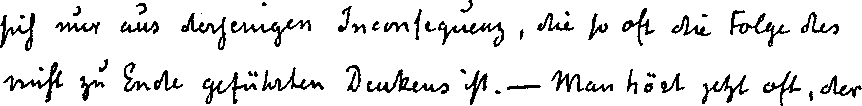 sich nur aus derjenigen Inconsequenz, die so oft die Folge des
nicht zu Ende geführten Denkens ist. — Man hört jetzt oft, der